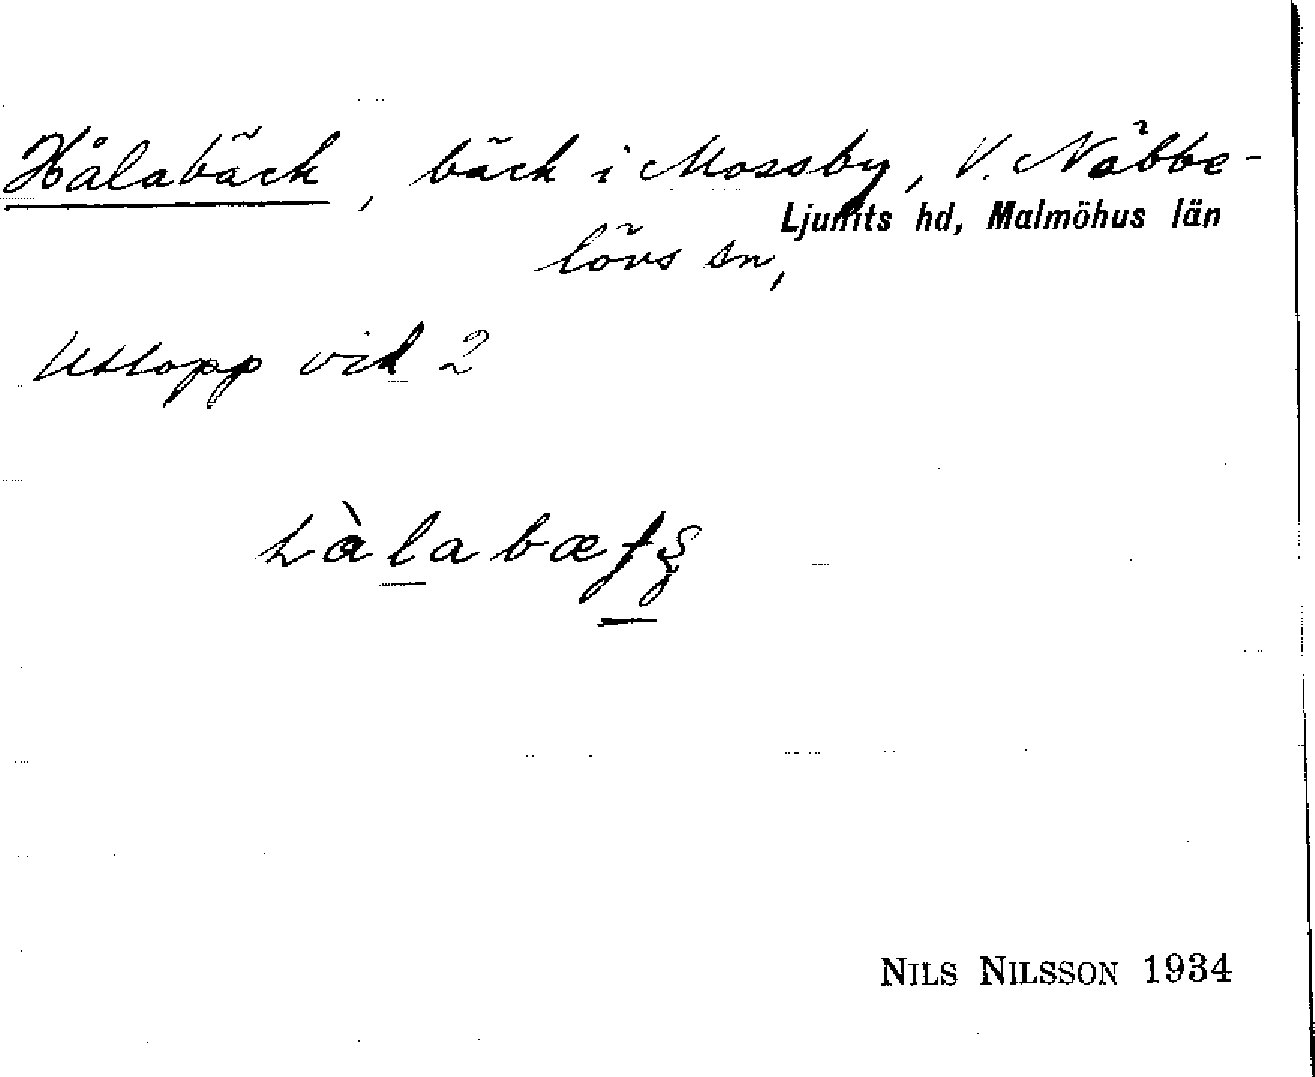 Hålabäck, bäck i Mossby, V. Nöbbe-
Ljunits hd, Malmöhus län
lövs sn,
Utlopp vid 2
NILS NILSSON 1934